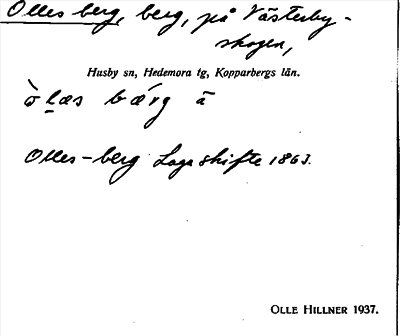 Olles berg, berg, på Västerby-
skogen,
Husby sn, Hedemora tg, Kopparbergs län.
Olles-berg Laga skifte 1863.
OLLE HILLNER 1937.